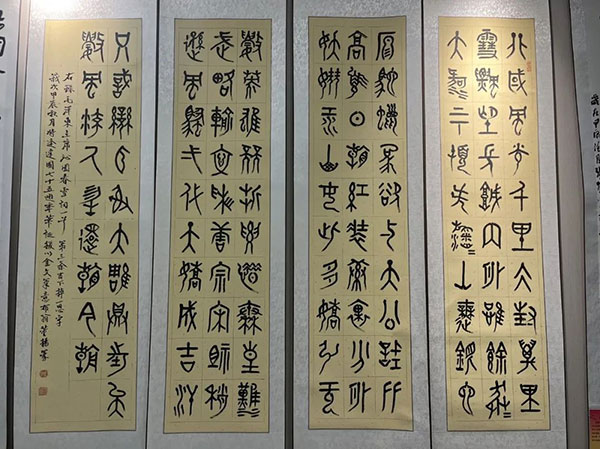 北國風光千里冰封萬里
雪飄望長城內外惟餘莽莽
大河上下頓失滔滔山舞銀蛇
原馳蠟象欲與天公試比
高須日看紅裝素裹分外
妖嬈江山如此多嬌引無
數英雄競折腰惜秦皇漢
武略輸文采唐宗宋祖稍
遜風騷一代天驕成吉汗
只識彎弓射大雕俱往矣
數風流人物還看今朝
右錄毛澤東主席沁園春雪詞一首 第三條吉下掉一思字
歲次甲辰秋月時逢建國七十五週年 以金文筆意